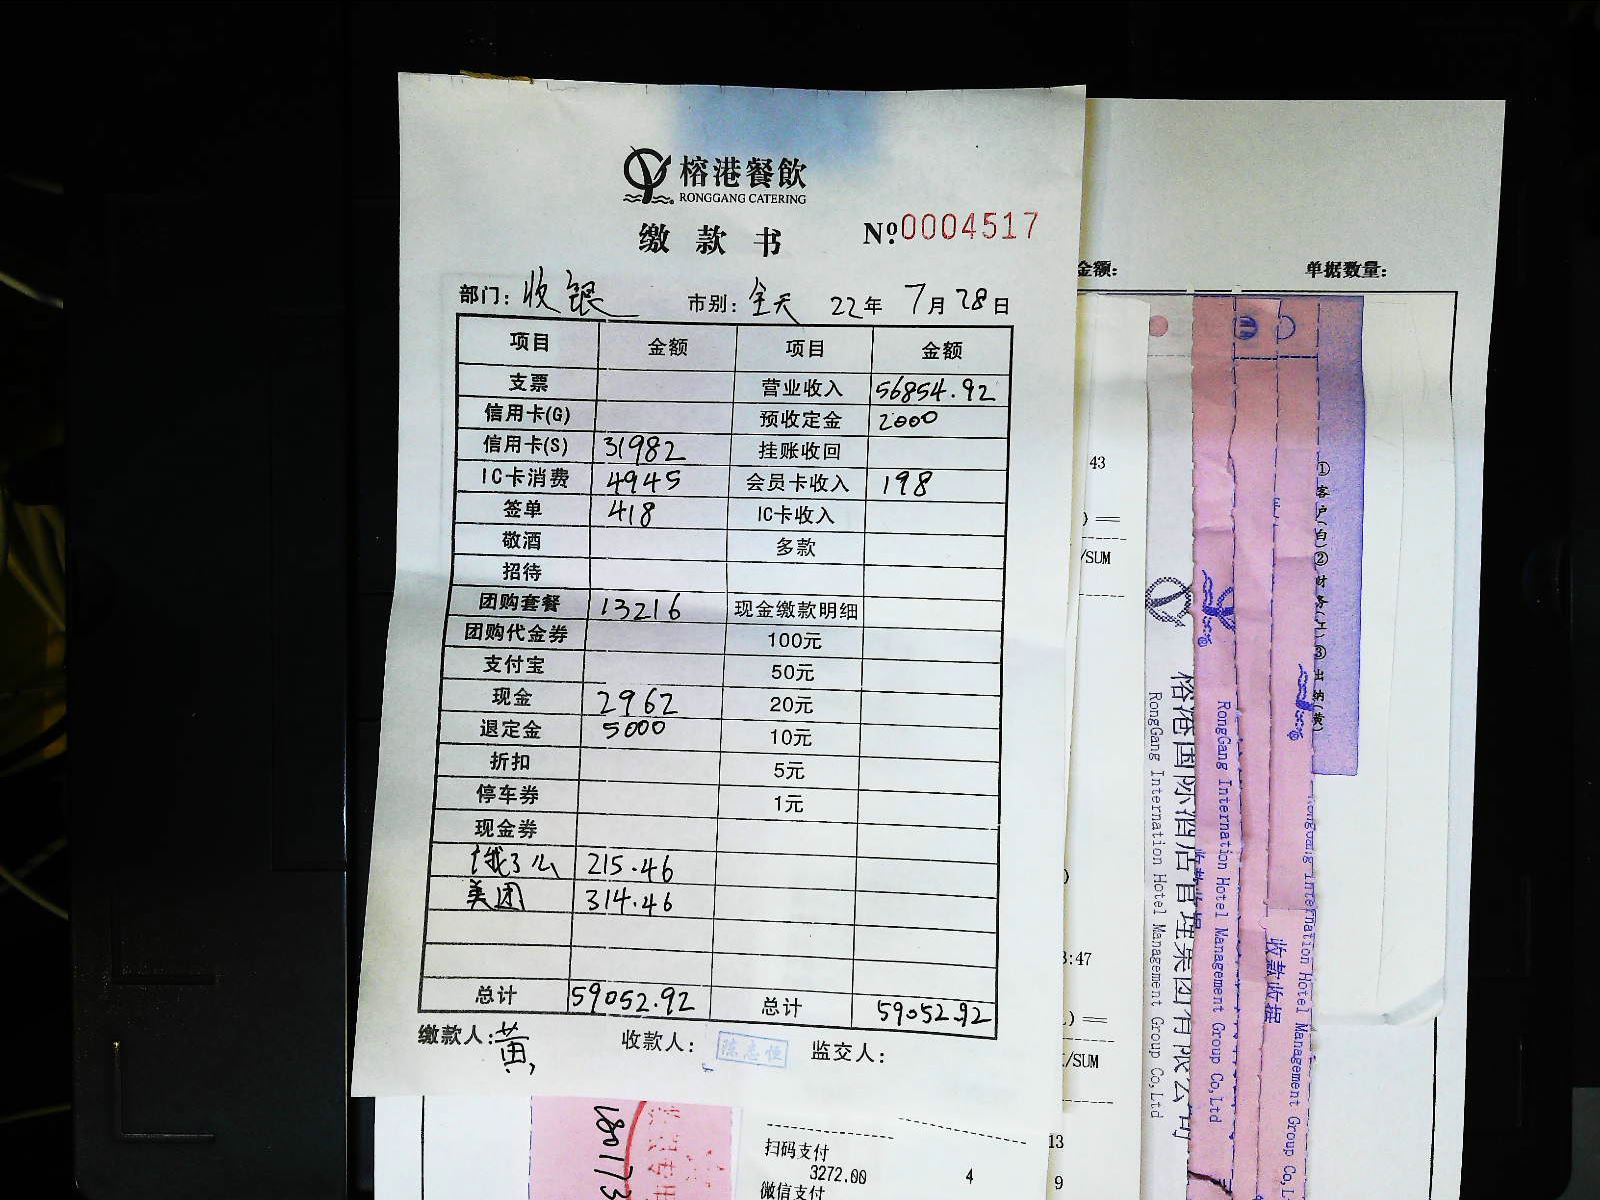 榕港餐飲
RONGGANG CATERING
缴款书 №0004517
部门：收银 市别：全天 22年 7月28日
项目 金额 项目 金额
支票 营业收入 56854.92
信用卡(G) 预收定金 2000
信用卡(S) 31982 挂账收回
IC卡消费 4945 会员卡收入 198
签单 418 IC卡收入
敬酒 多款
招待
团购套餐 13216 现金缴款明细
团购代金券 100元
支付宝 50元
现金 2962 20元
退定金 5000 10元
折扣 5元
停车券 1元
现金券
饿了么 215.46
美团 314.46
总计 59052.92 总计 59052.92
缴款人：黄 收款人：陈志恒 监交人：
金额： 单据数量：
43
) ==
/SUM
)
3:47
) ==
/SUM
13
9
扫码支付
3272.00 4
微信支付
180173
①客户(白)②财务(红)③出纳(黄)
榕港国际酒店管理集团有限公司
RongGang Internation Hotel Management Group Co,Ltd
RongGang Internation Hotel Management Group Co,Ltd
收款收据
RongGang Internation Hotel Management Group Co,L